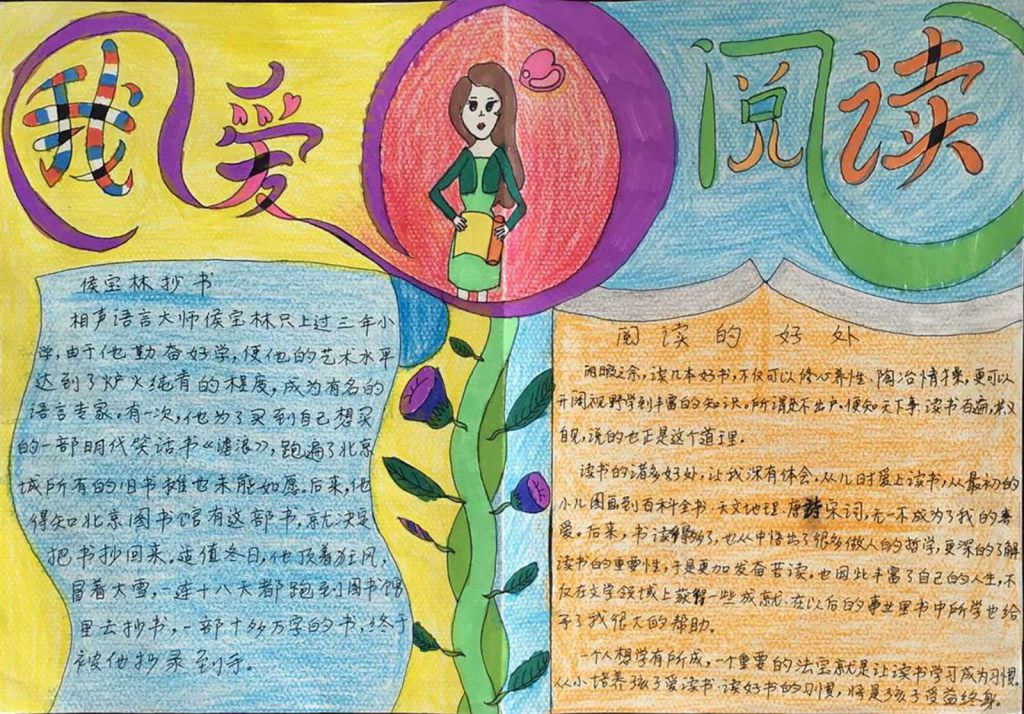 我爱阅读
侯宝林抄书
相声语言大师侯宝林只上过三年小
学,由于他勤奋好学,使他的艺术水平
达到了炉火纯青的程度,成为有名的
语言专家。有一次,他为了买到自己想买
的一部明代笑话书《谑浪》,跑遍了北京
城所有的旧书摊也未能如愿。后来,他
得知北京图书馆有这部书,就决定
把书抄回来。适值冬日,他顶着狂风,
冒着大雪,一连十八天都跑到图书馆
里去抄书,一部十多万字的书,终于
被他抄录到手。
阅读的好处
闲暇之余,读几本好书,不仅可以修心养性、陶冶情操,更可以
开阔视野学到丰富的知识。所谓足不出户,便知天下事.读书百遍,其义
自见,说的也正是这个道理。
读书的诸多好处,让我深有体会,从儿时爱上读书,从最初的
小儿图画到百科全书·天文地理.唐诗宋词,无一不成为了我的喜
爱。后来,书读得多了,也从中悟出了很多做人的哲学,更深的了解
读书的重要性,于是更加发奋苦读。也因此丰富了自己的人生,不
仅在文学领域上获得一些成就.在以后的事业里书中所学也给
予了我很大的帮助。
一个人想学有所成,一个重要的法宝就是让读书学习成为习惯.
从小培养孩子爱读书·读好书的习惯,将是孩子受益终身。